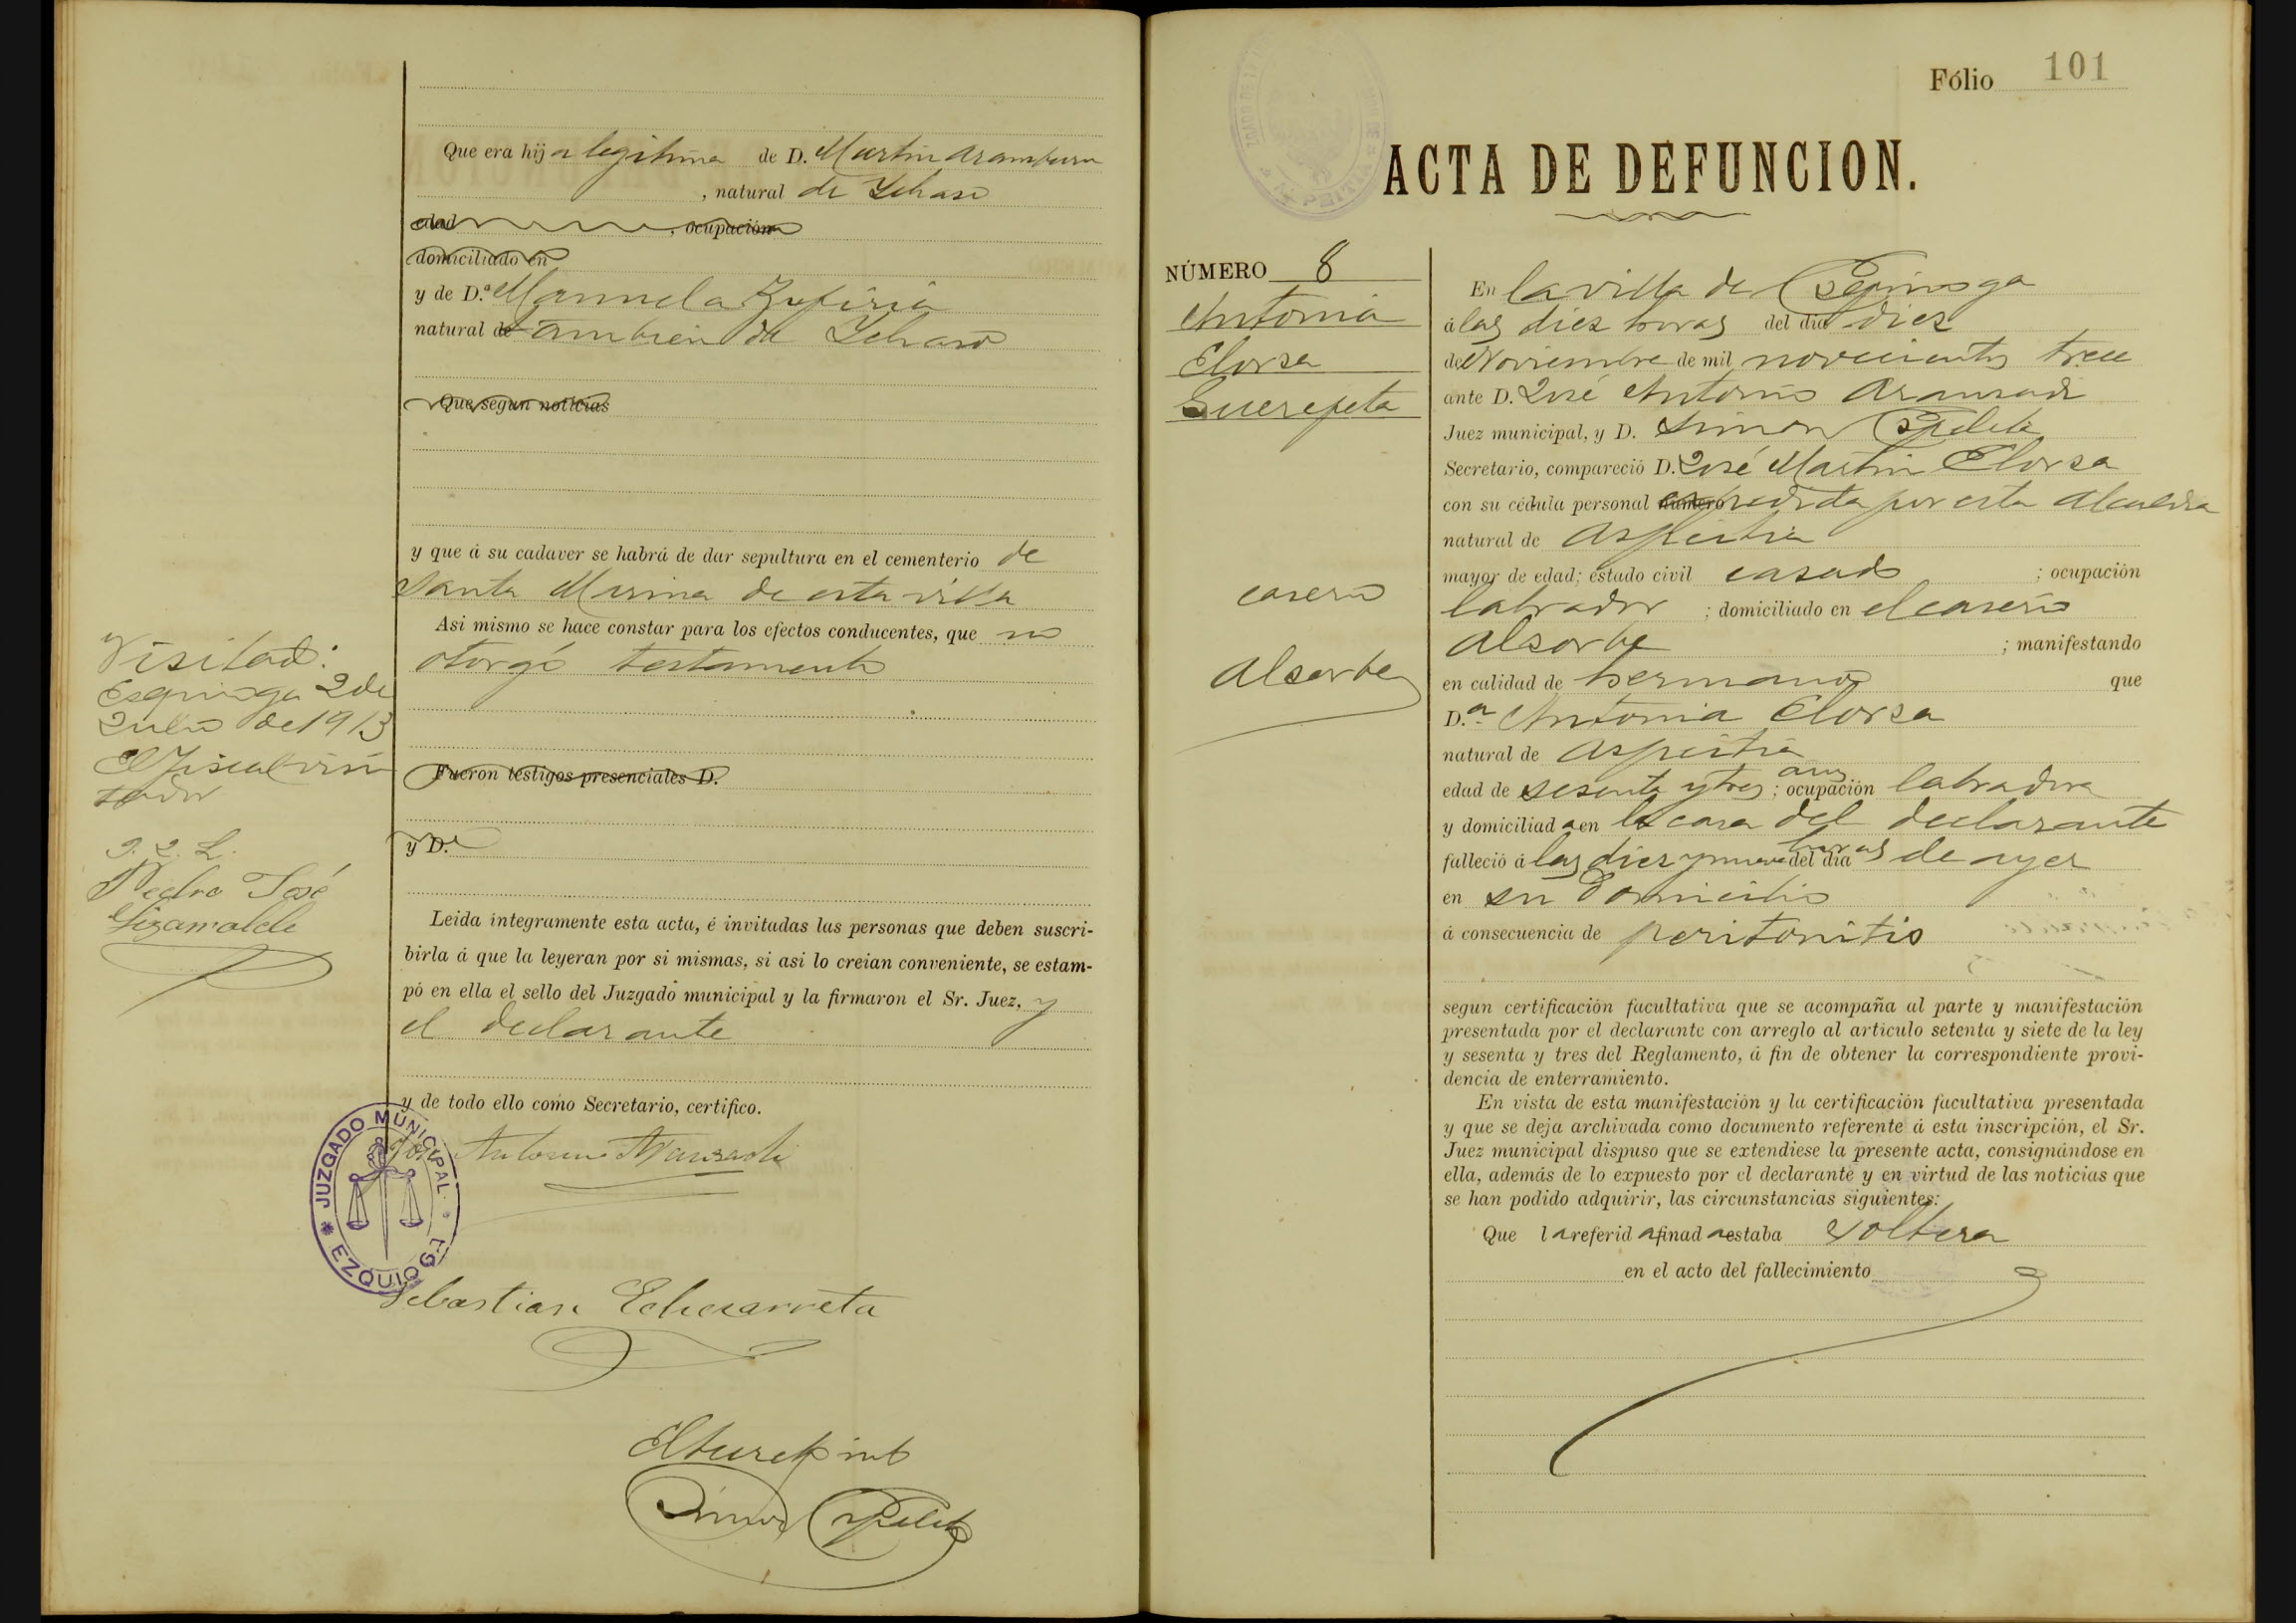 Que era hija legitima de D. Martin Aramburu
, natural de Ichaso
edad , ocupación
domiciliado en
y de D.ª Manuela Zufiria
natural de tambien de Ichaso
Que segun noticias
y que á su cadaver se habrá de dar sepultura en el cementerio de
Santa Marina de esta villa
Asi mismo se hace constar para los efectos conducentes, que no
otorgó testamento
Fueron testigos presenciales D.
y D.
Leida íntegramente esta acta, é invitadas las personas que deben suscri-
birla á que la leyeran por si mismas, si asi lo creian conveniente, se estam-
pó en ella el sello del Juzgado municipal y la firmaron el Sr. Juez, y
el declarante
y de todo ello como Secretario, certifico.
José Antonio Aranzadi
JUZGADO MUNICIPAL
EZQUIOGA
Sebastian Echezarreta
Simon
Visitado:
Ezquioga 2 de
Julio de 1913
El Fiscal visi
tador
Pedro José
Lizarralde
Fólio 101
ACTA DE DEFUNCION.
NÚMERO 8
Antonia
Elorza
Guerepeta
caserio
Alsorbe
En la villa de Ezquioga
á las diez horas del dia diez
de Noviembre de mil novecientos trece
ante D. José Antonio Aranzadi
Juez municipal, y D. Simon
Secretario, compareció D. José Martin Elorza
con su cédula personal número expedida por esta Alcaldia
natural de Aspeitia
mayor de edad; estado civil casado ; ocupación
labrador ; domiciliado en el caserio
Alsorbe ; manifestando
en calidad de hermano que
D.ª Antonia Elorza
natural de Aspeitia
edad de sesenta y tres años ; ocupación labradora
y domiciliada en la casa del declarante
falleció á las diez y nueve horas del dia de ayer
en su domicilio
á consecuencia de peritonitis
segun certificación facultativa que se acompaña al parte y manifestación
presentada por el declarante con arreglo al artículo setenta y siete de la ley
y sesenta y tres del Reglamento, á fin de obtener la correspondiente provi-
dencia de enterramiento.
En vista de esta manifestación y la certificación facultativa presentada
y que se deja archivada como documento referente á esta inscripción, el Sr.
Juez municipal dispuso que se extendiese la presente acta, consignándose en
ella, además de lo expuesto por el declarante y en virtud de las noticias que
se han podido adquirir, las circunstancias siguientes:
Que la referida finada estaba soltera
en el acto del fallecimiento